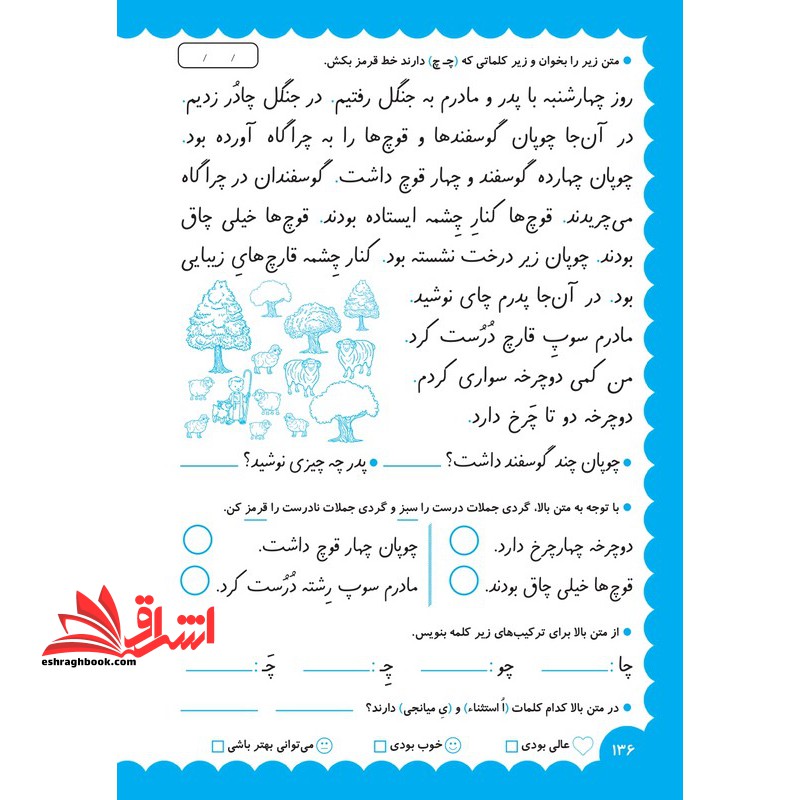 متن زیر را بخوان و زیر کلماتی که (چـ چ) دارند خط قرمز بکش.
/ /
روز چهارشنبه با پدر و مادرم به جنگل رفتیم. در جنگل چادُر زدیم.
در آن‌جا چوپان گوسفندها و قوچ‌ها را به چراگاه آورده بود.
چوپان چهارده گوسفند و چهار قوچ داشت. گوسفندان در چراگاه
می‌چریدند. قوچ‌ها کنارِ چِشمه ایستاده بودند. قوچ‌ها خیلی چاق
بودند. چوپان زیر درخت نشسته بود. کنار چِشمه قارچ‌هایِ زیبایی
بود. در آن‌جا پدرم چای نوشید.
مادرم سوپِ قارچ دُرُست کرد.
من کمی دوچرخه سواری کردم.
دوچرخه دو تا چَرخ دارد.
چوپان چند گوسفند داشت؟ پدر چه چیزی نوشید؟
با توجه به متن بالا، گردی جملات درست را سبز و گردی جملات نادرست را قرمز کن.
دوچرخه چهارچرخ دارد. چوپان چهار قوچ داشت.
قوچ‌ها خیلی چاق بودند. مادرم سوپ رِشته دُرُست کرد.
از متن بالا برای ترکیب‌های زیر کلمه بنویس.
چا: چو: چِـ: چَـ:
در متن بالا کدام کلمات (اُ استثناء) و (یِ میانجی) دارند؟
عالی بودی خوب بودی می‌توانی بهتر باشی
۱۳۶
اشراق
eshraghbook.com